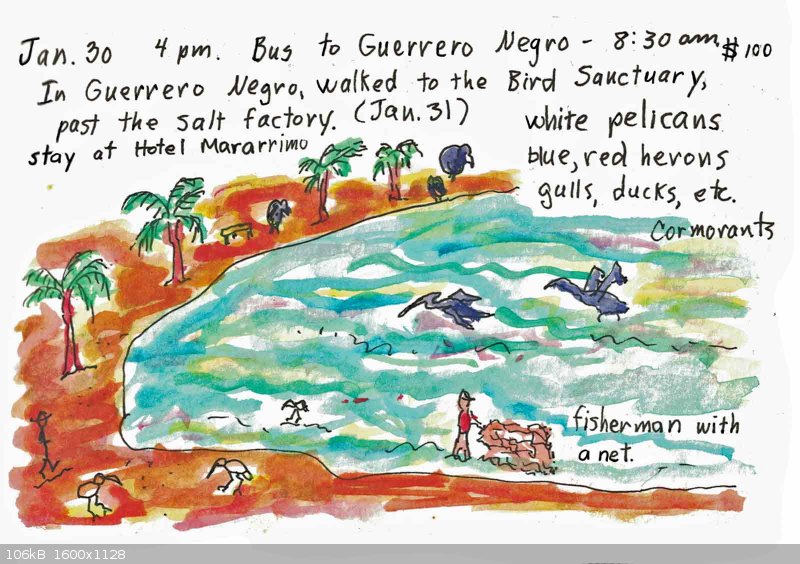 Jan. 30 4 pm. Bus to Guerrero Negro - 8:30 am $100
In Guerrero Negro, walked to the Bird Sanctuary,
past the salt factory. (Jan. 31)
stay at Hotel Mararrimo
white pelicans
blue, red herons
gulls, ducks, etc.
Cormorants
fisherman with
a net.
106kB 1600x1128